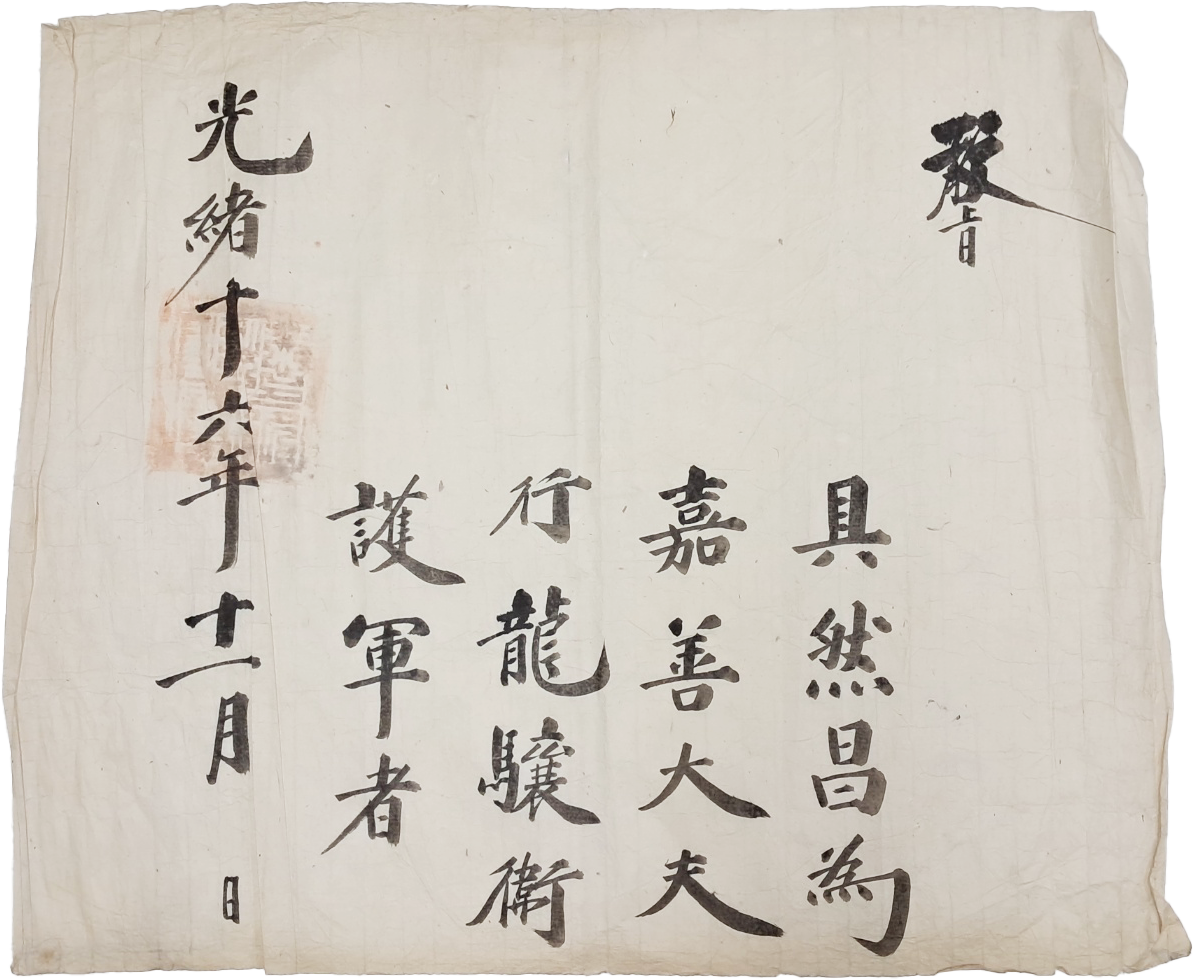 敎旨
具然昌為
嘉善大夫
行龍驤衛
護軍者
光緒十六年十一月 日